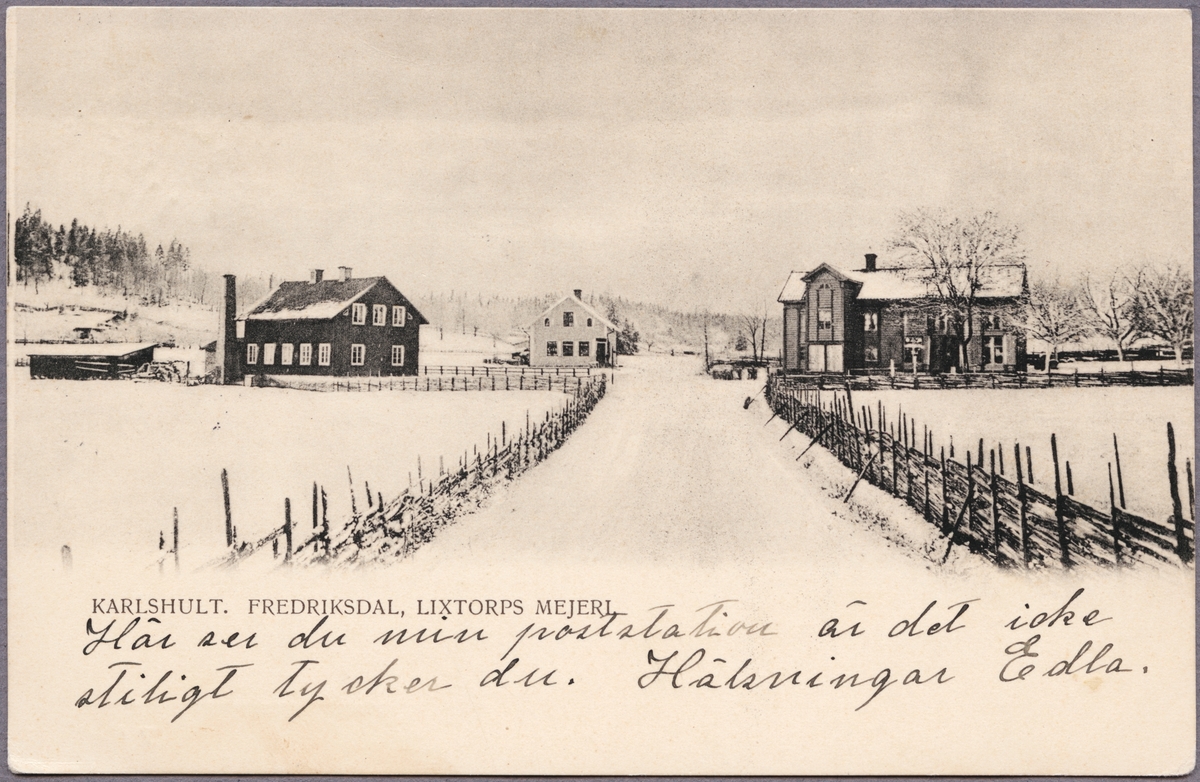 KARLSHULT. FREDRIKSDAL, LIXTORPS MEJERI.
Här ser du min poststation är det icke
stiligt tycker du. Hälsningar Edla.